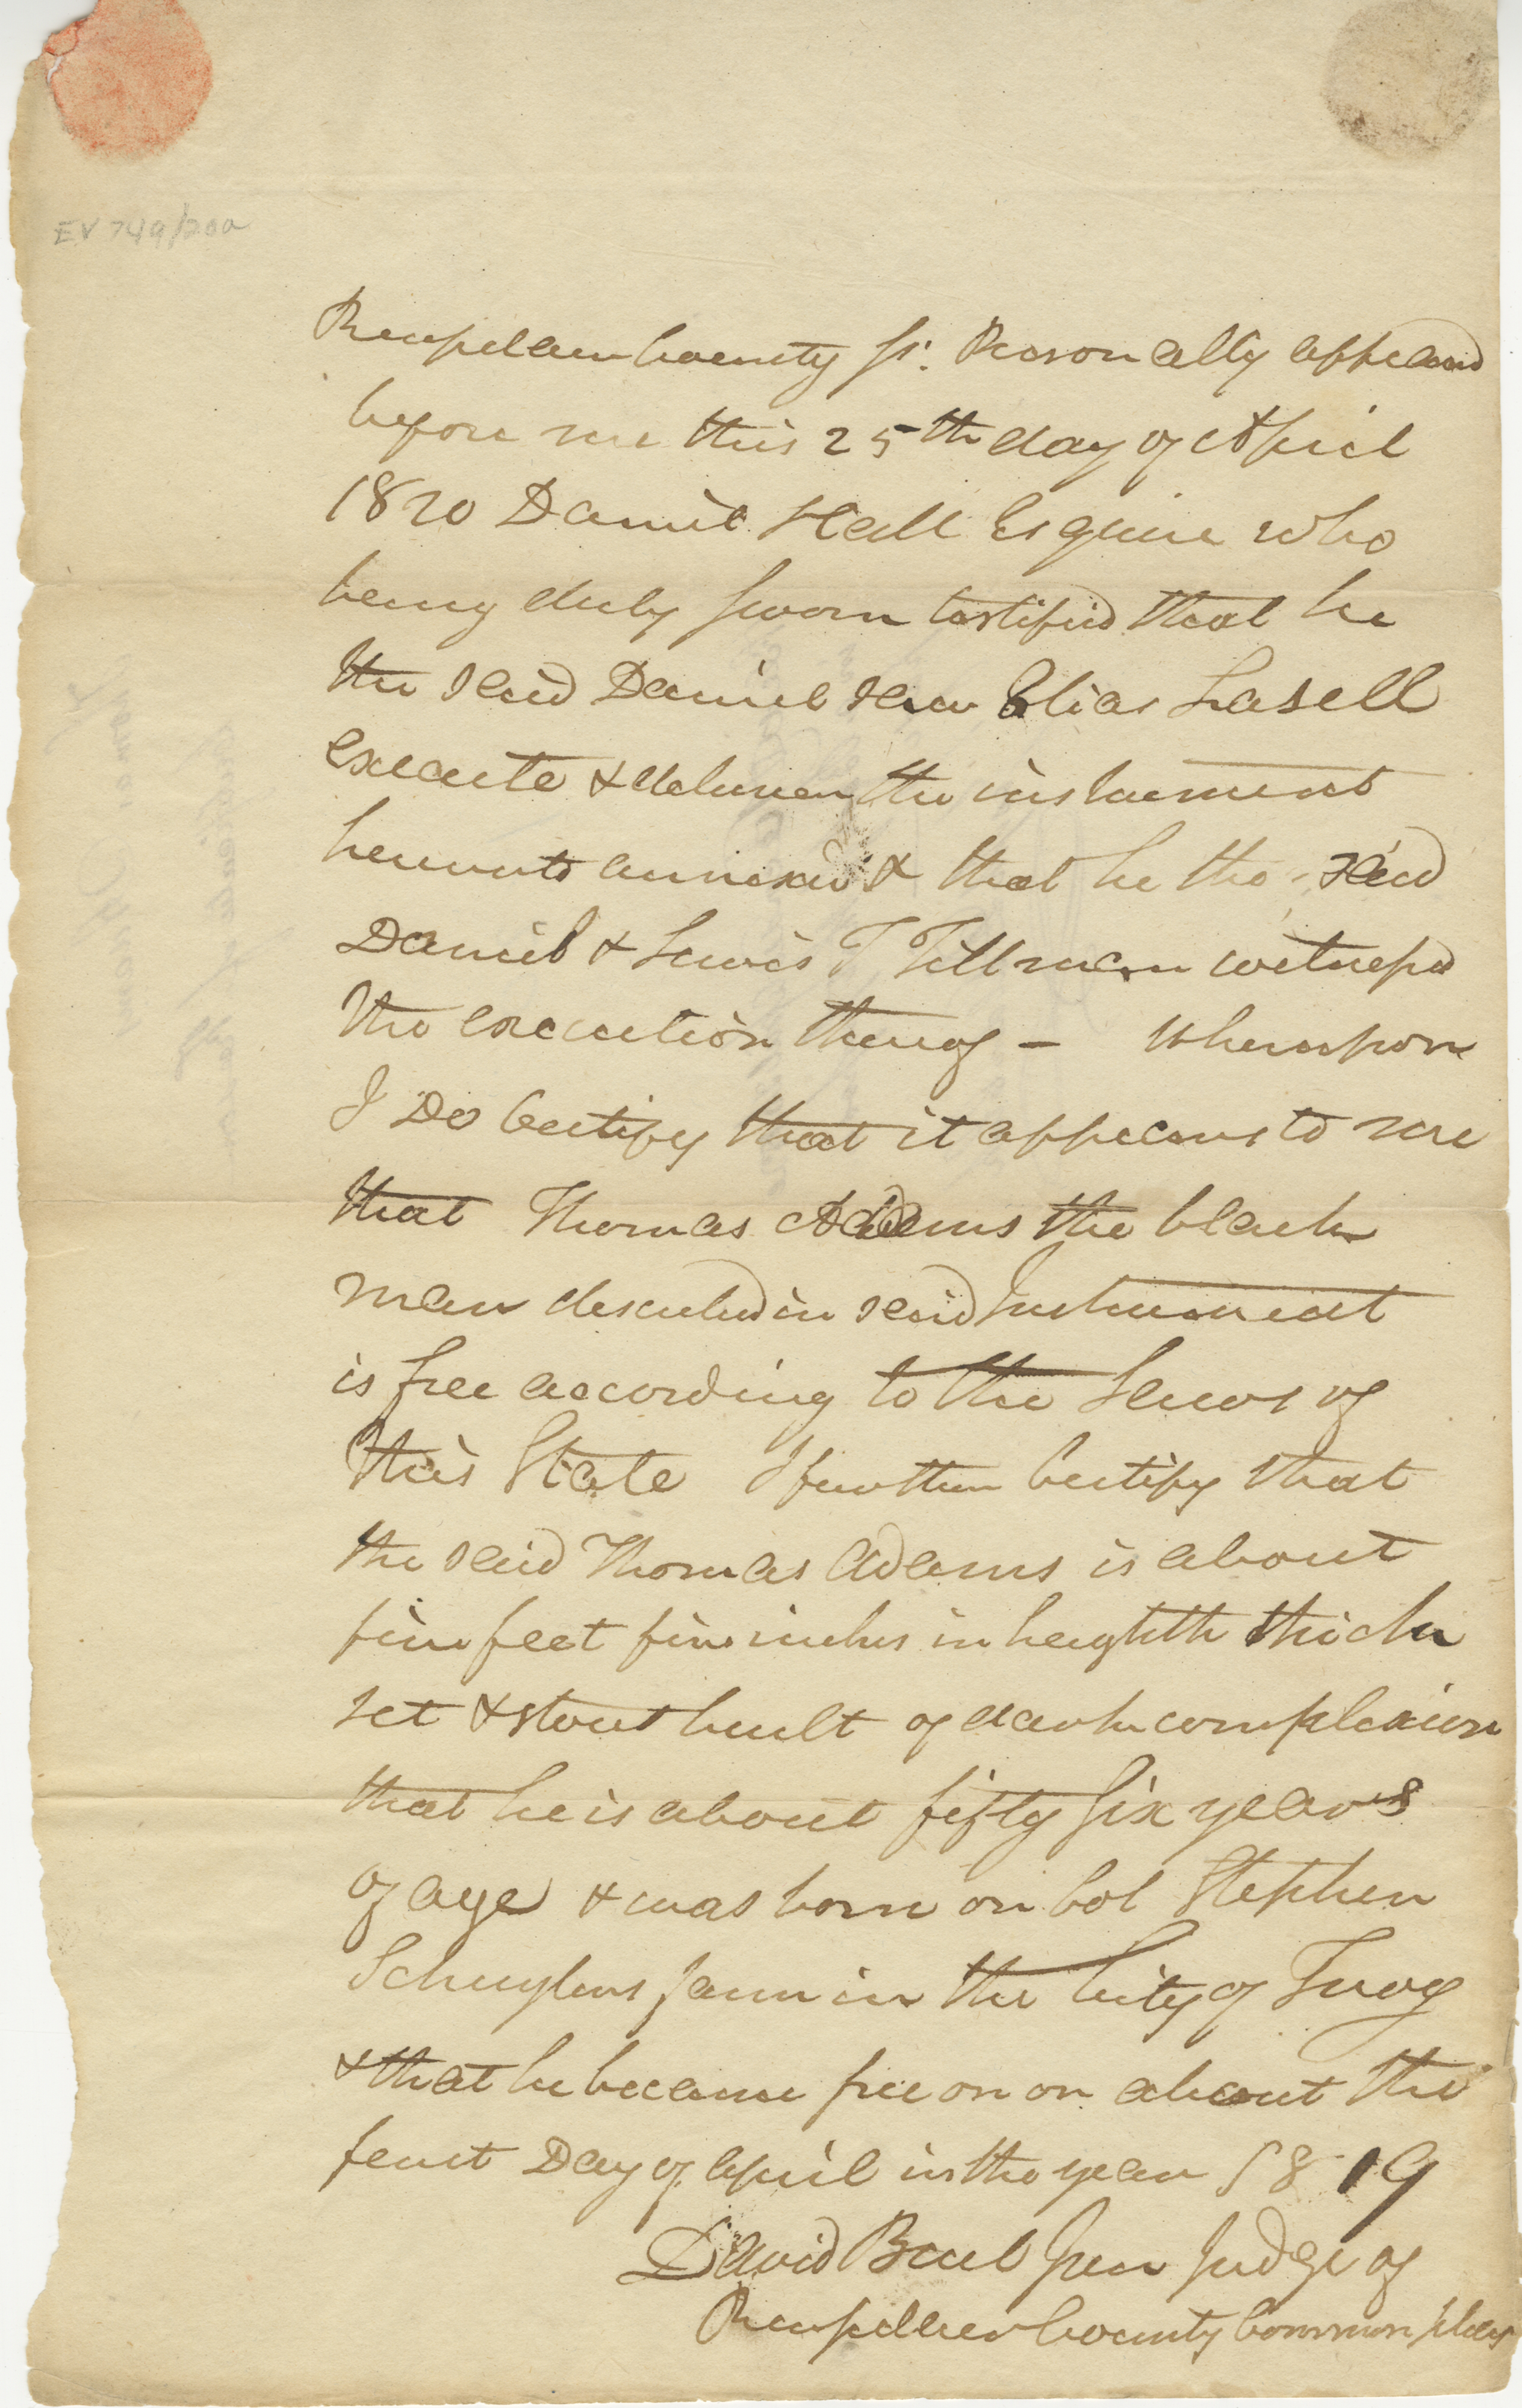 EV 749/20a
Rensselaer County ss. Personally appeared
before me this 25th day of April
1820 Daniel Hall Esquire who
being duly sworn testified that he
the said Daniel saw Elias Lasell
execute & deliver the instrument
hereunto annexed & that he the said
Daniel & Lewis T Tillman witnessed
the execution thereof - Whereupon
I Do Certify that it appears to me
that Thomas Adams the black
man described in said Instrument
is free according to the Laws of
this State I further Certify that
the said Thomas Adams is about
five feet five inches in heighth thick
set & stout built of dark complexion
that he is about fifty six years
of age & was born on Col Stephen
Schuylers farm in the City of Troy
& that he became free on or about the
first Day of April in the year 1819
David Buel Jun Judge of
Rensselaer County Common pleas